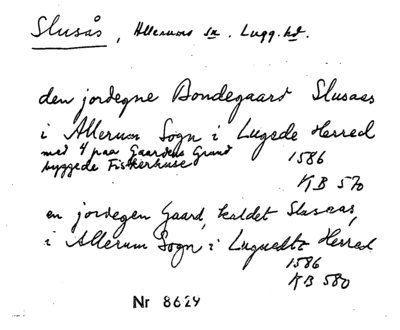 Slusås, Allerums sn. Lugg. hd.
den jordegne Bondegaard Slusaas
i Allerum Sogn i Lugede Herred
med 4 paa Gaardens Grund
byggede Fiskerhuse
1586
KB 570
en jordegen Gaard, kaldet Slusaas,
i Allerum Sogn i Luguedtt Herred
1586
KB 580
Nr 8629